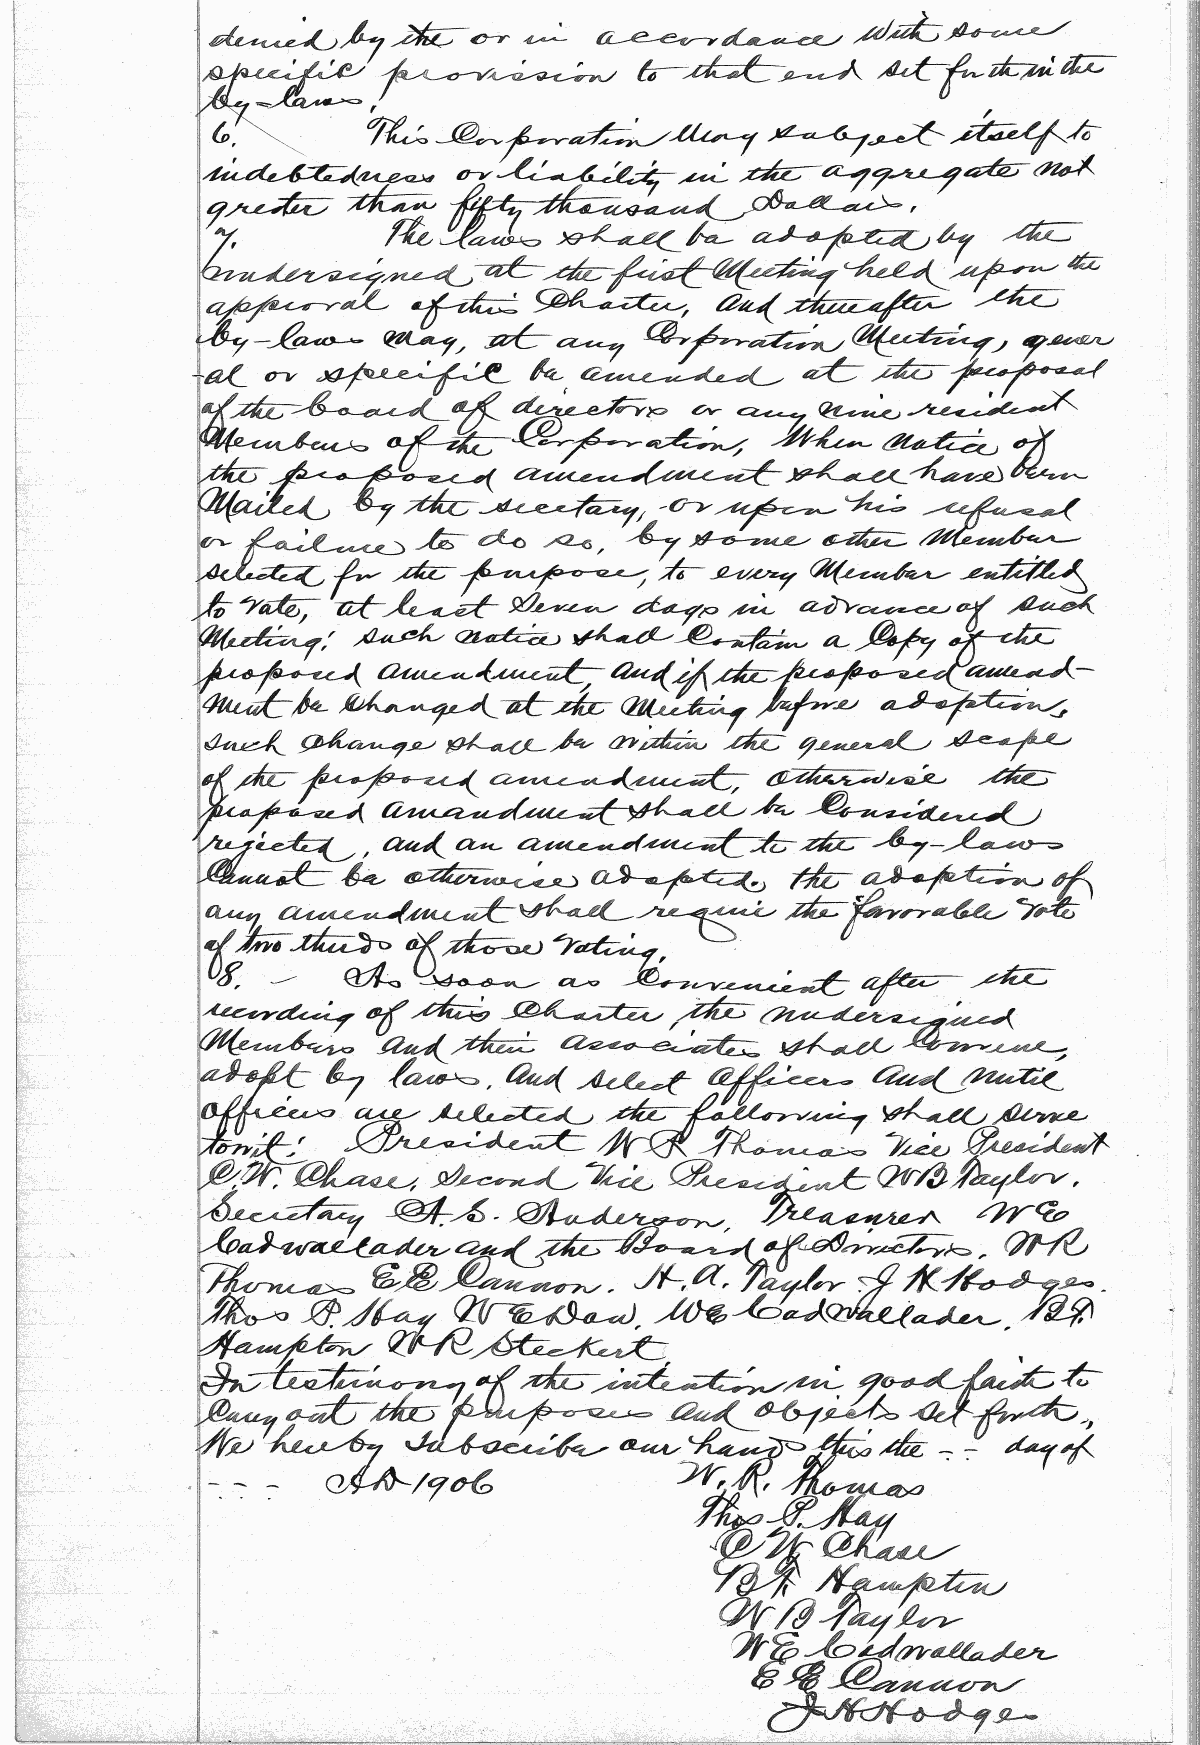 denied by the or in accordance with some
specific provission to that end set forth in the
by-laws.
6. This Corporation May subject itself to
indebtedness or liability in the aggregate not
greater than fifty thousand Dollars.
7. The laws shall be adopted by the
undersigned at the first Meeting held upon the
approval of this Charter, and thereafter the
by-laws may, at any Corporation Meeting, gener
-al or specific be amended at the proposal
of the board of directors or any nine resident
Members of the Corporation, When notice of
the proposed amendment shall have been
Mailed by the secetary, or upon his refusal
or failure to do so, by some other Member
selected for the purpose, to every Member entitled
to vote, at least Seven days in advance of such
Meeting: such notice shall Contain a Copy of the
proposed amendment, and if the proposed amend-
ment be changed at the Meeting before adoption,
such change shall be within the general scope
of the proposed amendment, otherwise the
proposed amandment shall be Considered
rejected, and an amendment to the by-laws
Cannot be otherwise adopted. the adoption of
any amendment shall require the favorable vote
of two thirds of those voting.
8. - As soon as Convenient after the
recording of this Charter, the undersigned
Members and their associates shall Convene,
adopt by laws, and select officers and until
officers are selected the following shall serve
towit: President W R Thomas Vice President
C.W. Chase, Second Vice President W B Taylor.
Secretary A. S. Anderson, Treasurer W E
Cadwallader and the Board of Directors. W R
Thomas E E Cannon. H. A. Taylor. J H Hodges.
Thos P. Hay W E Dow, W E Cadwallader, B. F.
Hampton W R Steckert
In testimony of the intention in good faith to
Carry out the purposes and objects set forth,
We hereby subscribe our hands this the - - day of
- - - - A D 1906 W. R. Thomas
Thos P. Hay
C W Chase
B F. Hampton
W B Taylor
W E Cadwallader
E E Cannon
J H Hodges